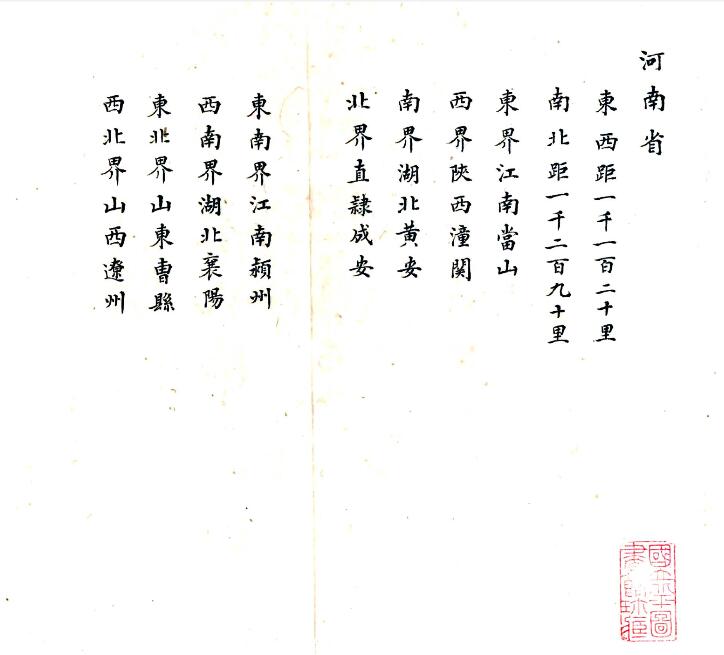 河南省
東西距一千一百二十里
南北距一千二百九十里
東界江南當山
西界陝西潼関
南界湖北黃安
北界直隸成安
東南界江南頴州
西南界湖北襄陽
東北界山東曹縣
西北界山西遼州
國立北平圖
書館珍藏